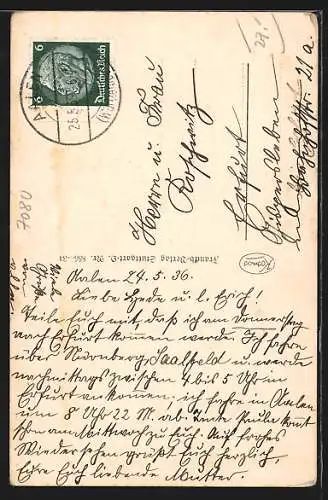 AALEN
25.5
6 6
Deutsches Reich
(Württ
23.-
7080
Herrn u. Frau
Roschütz
Erfurt
Bahnhofstr. 21 a.
Frandh-Verlag Stuttgart-O. Nr. 886
Aalen 24.5.36.
Liebe Hede u. l. Erich!
Teile Euch mit, daß ich am Donnerstag
nach Erfurt komen werde. Ich fahre
über Nürnberg, Saalfeld u. werde
nachmittags zwischen 4 bis 5 Uhr in
Erfurt ankomen. ich fahre in Aalen
um 8 Uhr 22 M. ab. Tante Paula komt
schon am Mittwoch zu Euch. Auf frohes
Wiedersehen grüßt Euch herzlich,
Eure Euch liebende Mutter.